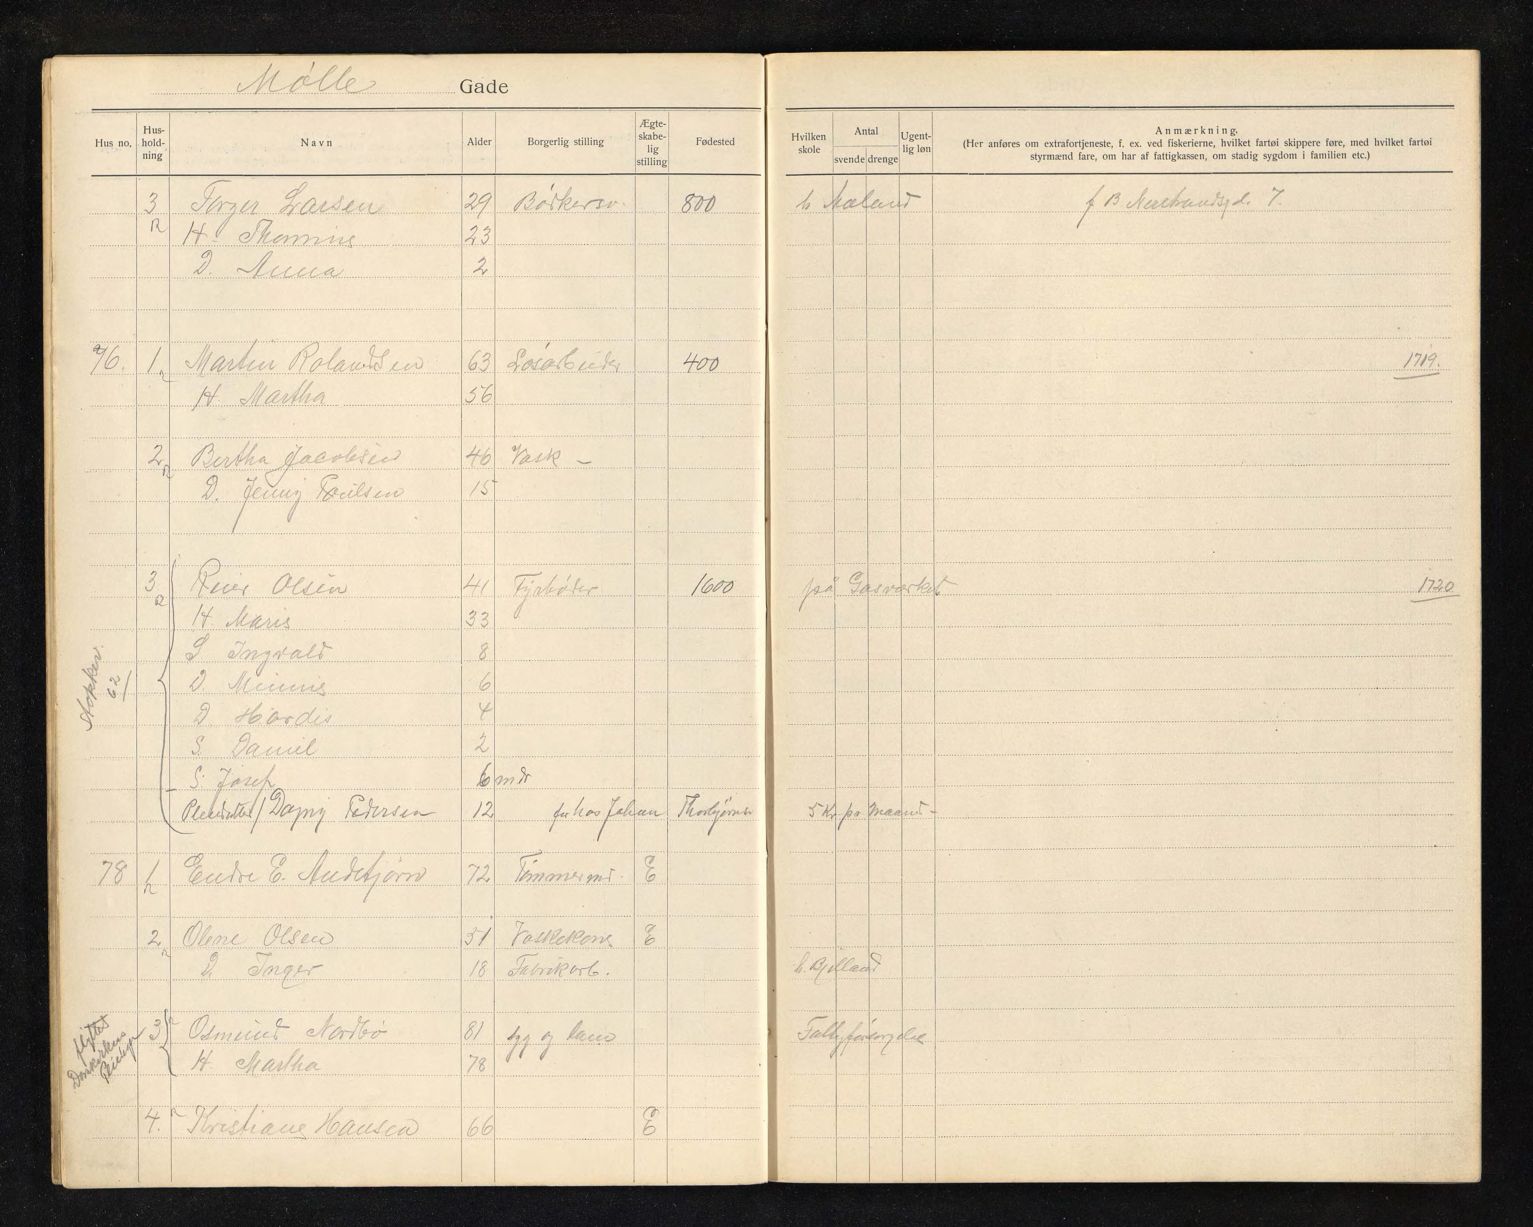 Mølle Gade
Hus no. Hus-hold-ning Navn Alder Borgerlig stilling Ægte-skabe-lig stilling Fødested Hvilken skole Antal svende drenge Ugent-lig løn Anmærkning.
(Her anføres om extrafortjeneste, f. ex. ved fiskerierne, hvilket fartøi skippere føre, med hvilket fartøi
styrmænd fare, om har af fattigkassen, om stadig sygdom i familien etc.)
3 Torger Larsen 29 Bødkersv. 800 h Aaland f B 7.
H. Thomine 23
D. Anna 2
76. 1 Martin Rolandsen 63 Løsarbeider 400 1719.
H Martha 56
2 Bertha Jacobsen 46 Vask –
D. Jenny Poulsen 15
3 Reier Olsen 41 Fyrbøder 1600 på Gasværket 1720
H. Marie 33
S Ingvald 8
Stokkev. 62
D. Minnie 6
D. Hardis 4
S. Daniel 2
S. Josef 6 mdr
Pleiedatter / Dagny Pedersen 12 før hos Johan Thorbjørnsen 5 Kr pr Maaned –
78 1 Endre E. Audebjørn 72 Tømmermd. E
2 Olene Olsen 51 Vaskekone E
D. Inger 18 Fabrikarb. h. Bjelland
flyttet
3 Osmund Nordbø 81 syg og lam Fattigforsørgelse
H. Martha 78
4. Kristiane Hansen 66 E